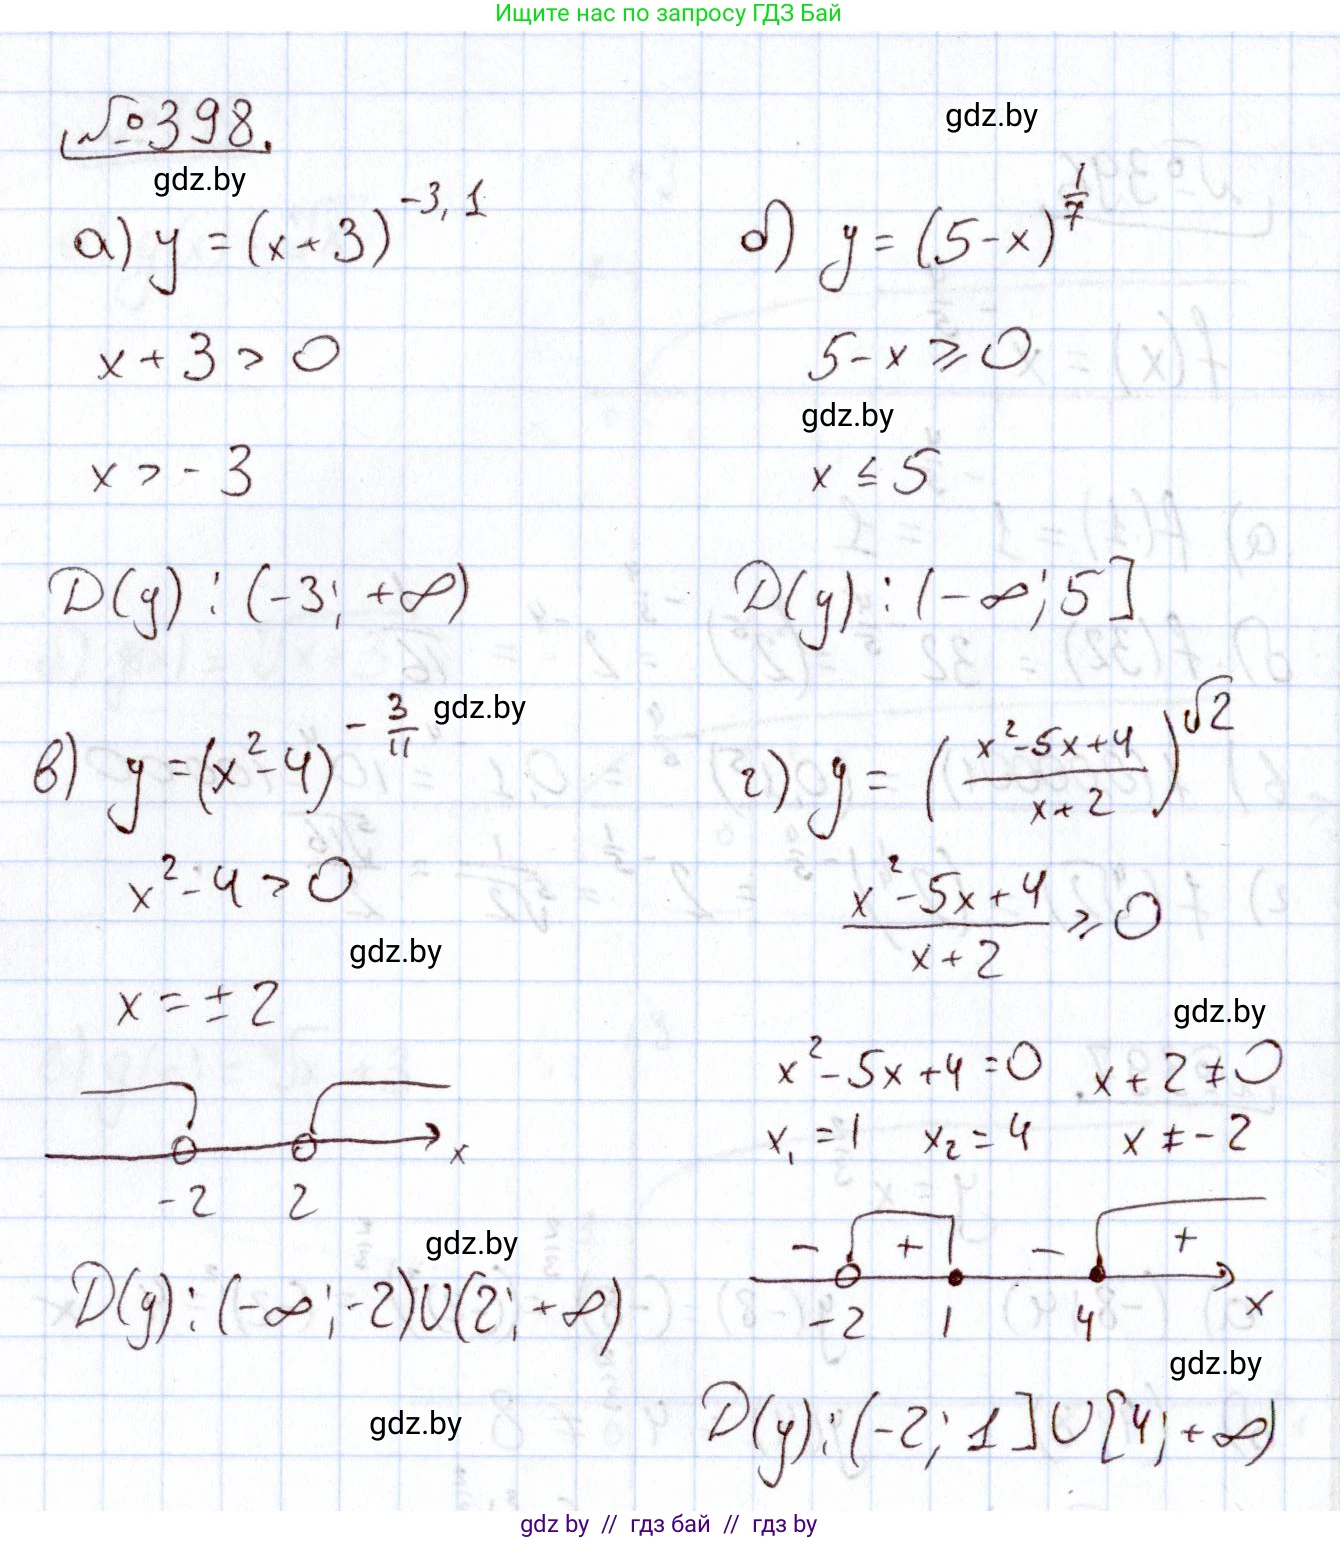 Ищите нас по запросу ГДЗ Бай
№398.
gdz.by
gdz.by
а) y = (x+3)^{-3,1}
x + 3 > 0
x > -3
D(y) : (-3; +∞)
б) y = (5-x)^{1/7}
5-x ≥ 0
gdz.by
x ≤ 5
D(y) : (-∞; 5]
в) y = (x²-4)^{-3/11}
gdz.by
x²-4 > 0
gdz.by
x = ±2
-2 2 x
gdz.by
D(y) : (-∞; -2)∪(2; +∞)
gdz.by
г) y = ((x²-5x+4)/(x+2))^{√2}
(x²-5x+4)/(x+2) ≥ 0
gdz.by
x²-5x+4=0 x+2≠0
x₁=1 x₂=4 x≠-2
- + - +
-2 1 4 x
gdz.by
D(y) : (-2; 1]∪[4; +∞)
gdz by // гдз бай // гдз by